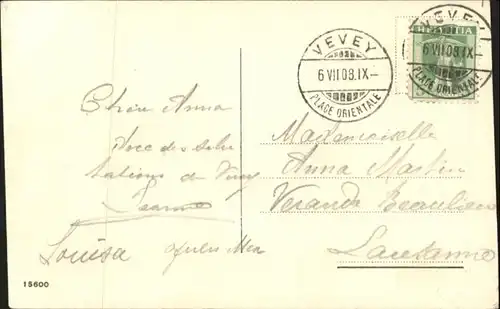 VEVEY
6 VII 08.IX-
PLACE ORIENTALE
VEVEY
6 VII 08.IX-
PLACE ORIENTALE
HELVETIA
Chère Anna
tations de Vevey
Louisa
Mademoiselle
Anna Martin
Veranda Beaulieu
Lausanne
15600